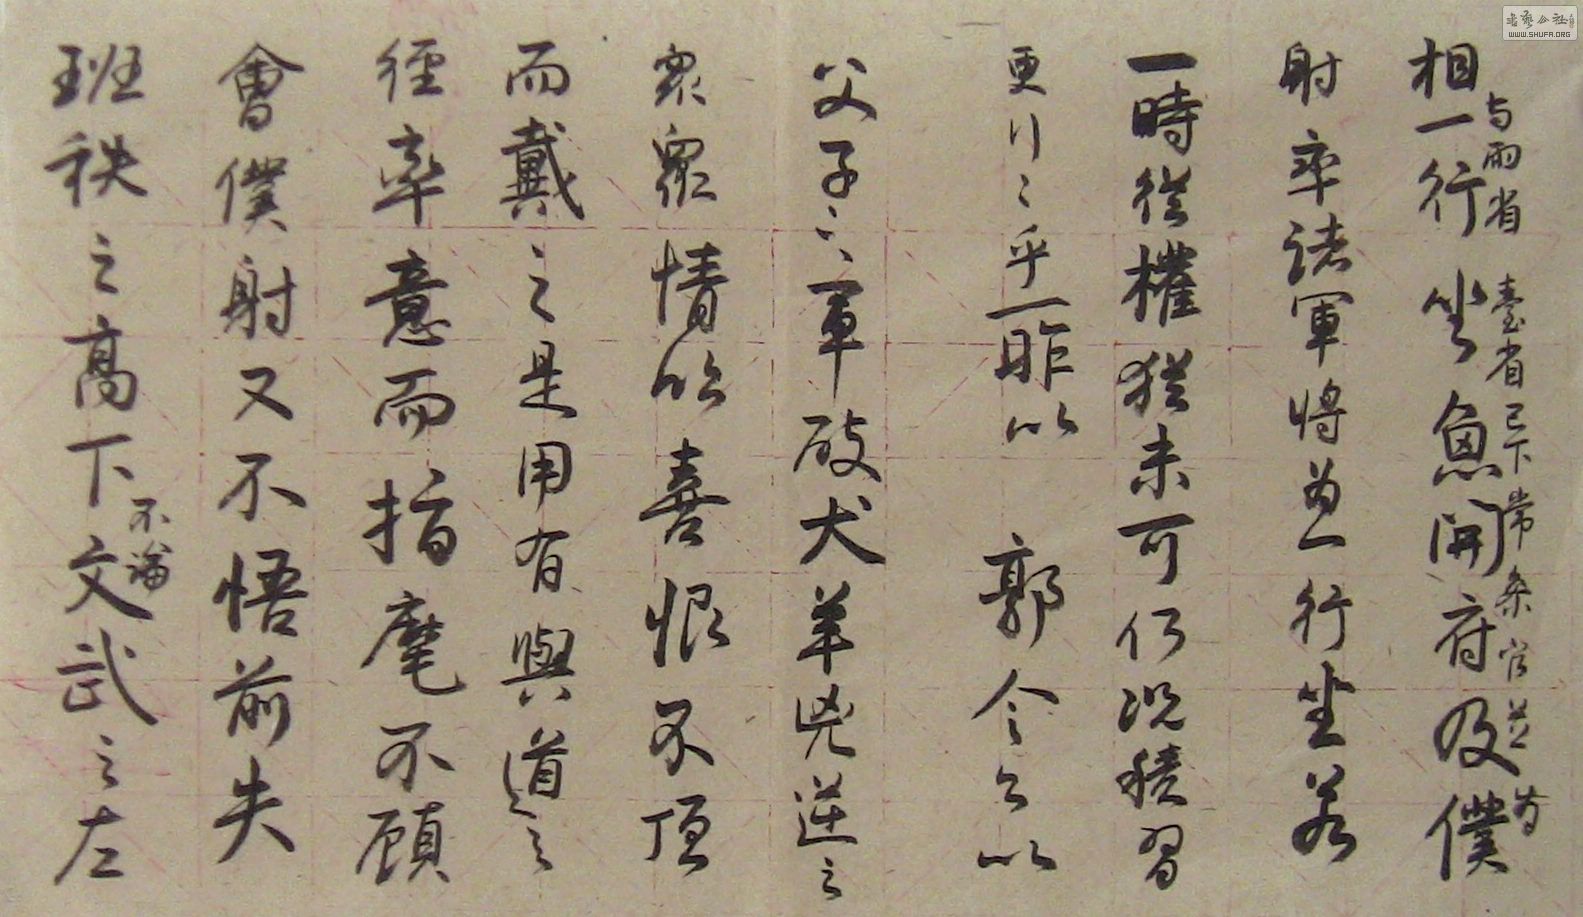 相一行坐魚開府及僕
与兩省臺省已下常參官並為
射率諸軍將為一行坐若
一時從權猶未可何況積習
更行之乎一昨以 郭令公以
父子之軍破犬羊兇逆之
眾眾情欣喜恨不頂
而戴之是用有興道之
徑率意而指麾不顧
會僕射又不悟前失
班秩之高下文武之左
不論
書藝公社
WWW.SHUFA.ORG